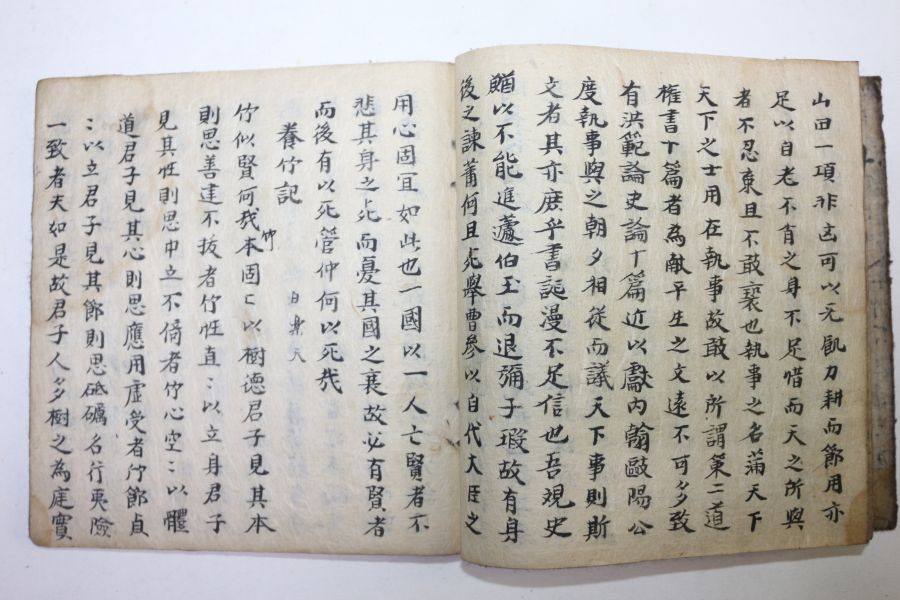 山田一項非凶可以无飢力耕而節用亦
足以自老不肖之身不足惜而天之所與
者不忍棄且不敢褻也執事之名滿天下
天下之士用在執事故敢以所謂策二道
權書十篇者為獻平生之文遠不可多致
有洪範論史論十篇近以獻內翰歐陽公
度執事與之朝夕相從而議天下事則斯
文者其亦庶乎書誕漫不足信也吾觀史
鰌以不能進蘧伯玉而退彌子瑕故有身
後之諫蕭何且死舉曹參以自代大臣之
用心固宜如此也一國以一人亡賢者不
悲其身之死而憂其國之衰故必有賢者
而後有以死管仲何以死哉
養竹記 白 天
竹似賢何哉竹本固〻以樹德君子見其本
則思善建不拔者竹性直〻以立身君子
見其性則思中立不倚者竹心空〻以體
道君子見其心則思應用虛受者竹節貞
〻以立君子見其節則思砥礪名行夷險
一致者夫如是故君子人多樹之為庭實